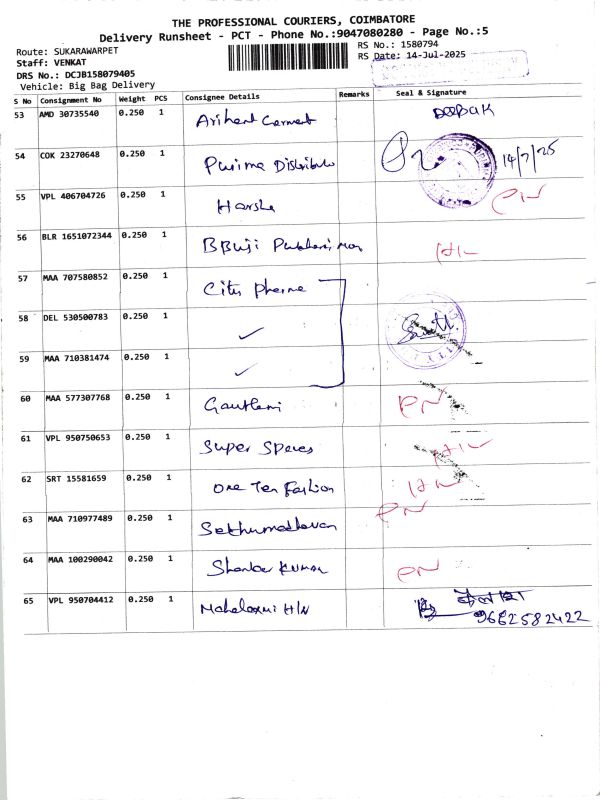 THE PROFESSIONAL COURIERS, COIMBATORE
Delivery Runsheet - PCT - Phone No.:9047080280 - Page No.:5
Route: SUKARAWARPET
Staff: VENKAT
DRS No.: DCJB158079405
Vehicle: Big Bag Delivery
RS No.: 1580794
RS Date: 14-Jul-2025
S No Consignment No Weight PCS Consignee Details Remarks Seal & Signature
53 AMD 30735540 0.250 1 Arihant Garment DEEPAK
54 COK 23270648 0.250 1 Purima Distributo 14/7/25
55 VPL 406704726 0.250 1 Harsha PN
56 BLR 1651072344 0.250 1 BBuji HL
57 MAA 707580852 0.250 1 City Pharma
58 DEL 530500783 0.250 1 ✓
59 MAA 710381474 0.250 1 ✓
60 MAA 577307768 0.250 1 Gautham PN
61 VPL 950750653 0.250 1 Super Spares
62 SRT 15581659 0.250 1 One Ten Fashion
63 MAA 710977489 0.250 1 Sethumadhavan PN
64 MAA 100290042 0.250 1 Shankar KUMAR PN
65 VPL 950704412 0.250 1 Mahalaxmi H/N
9662582422